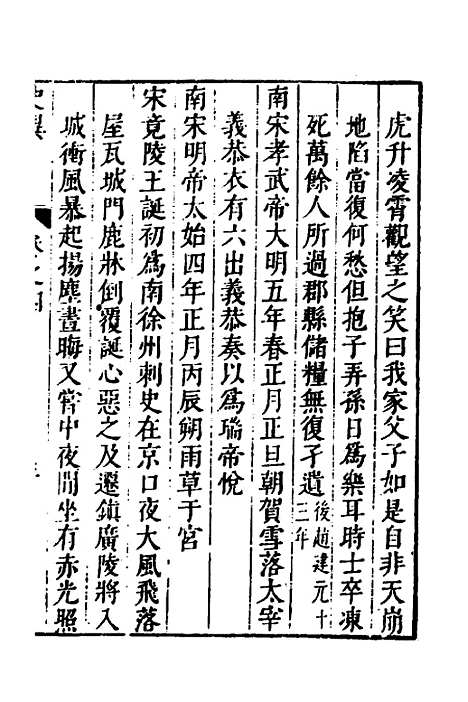 虎升凌霄觀望之笑曰我家父子如是自非天崩
地陷當復何愁但抱子弄孫日爲樂耳時士卒凍
死萬餘人所過郡縣儲糧無復孑遺後趙建元十三年
南宋孝武帝大明五年春正月正旦朝賀雪落太宰
義恭衣有六出義恭奏以爲瑞帝悅
南宋明帝太始四年正月丙辰朔雨草于宮
宋竟陵王誕初爲南徐州刺史在京口夜大風飛落
屋瓦城門鹿牀倒覆誕心惡之及遷鎮廣陵將入
城衝風暴起揚塵晝晦又嘗中夜閒坐有赤光照